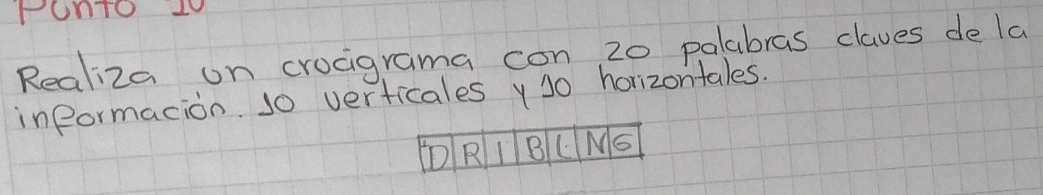 Punto 10
Realiza un crocigrama con 20 palabras claves de la
información. 10 verticales y 10 horizontales.
DRIBLING